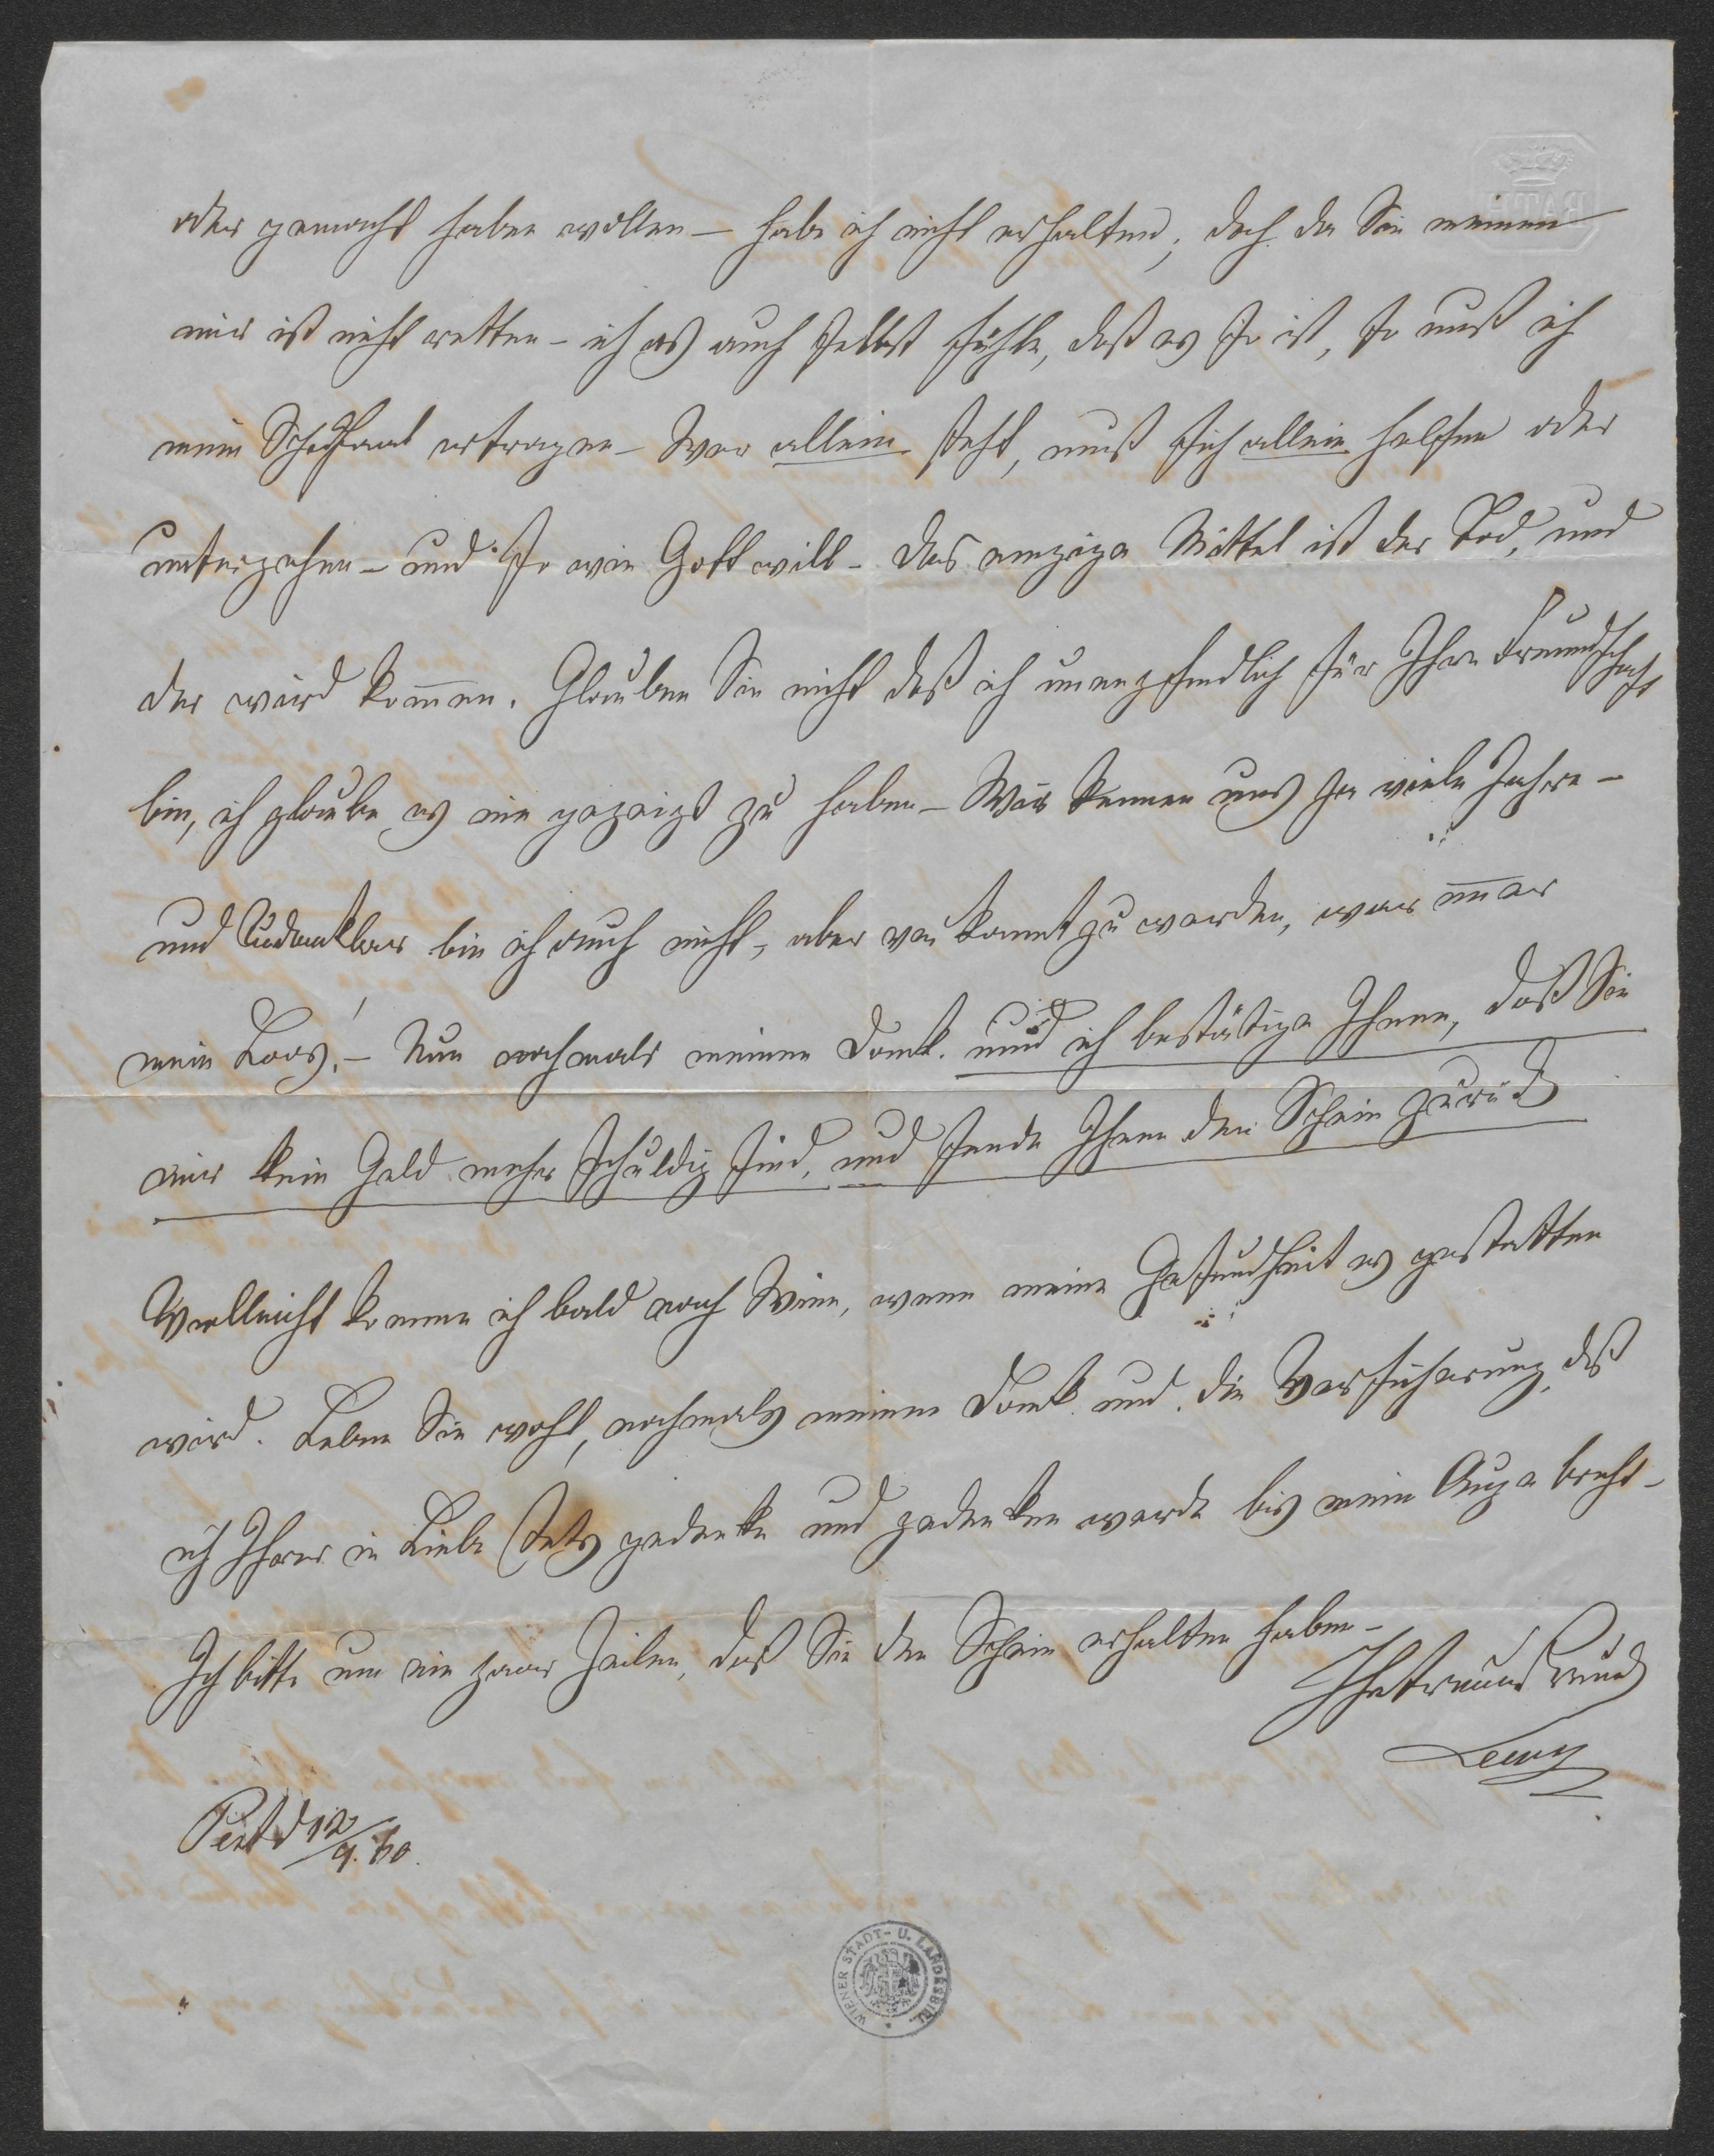 BATH
oder gemacht haben wollen – habe ich nicht erhalten; doch da Sie meinen
mir ist nicht retten – ich es auch selbst fühle, daß es so ist, so muß ich
mein Schicksaal ertragen – Wer allein steht, muß sich allein helfen oder
untergehen – und so wie Gott will – das einzige Mittel ist der Tod, und
der wird kom̅en. Glauben Sie nicht daß ich unempfindlich für Ihre Freundschaft
bin, ich glaube es nie gezeigt zu haben – Wir kennen uns ja viele Jahre –
und Undankbar bin ich auch nicht, aber verkannt zu werden, war im̅er
mein Loos! – Nun nochmals meinen Dank. und ich bestätige Ihnen, daß Sie
mir kein Geld mehr schuldig sind, und sende Ihnen den Schein zurück
Vielleicht komme ich bald nach Wien, wenn meine Gesundheit es gestatten
wird. Leben Sie wohl, nochmals meinen Dank und die Versicherung, daß
ich Ihrer in Liebe stets gedenke und gedenken werde bis mein Auge bricht –
Ich bitte um ein paar Zeilen, daß Sie den Schein erhalten haben –
Ihr treuer Freund
Lewy
Pest d 12/9. 60.
WIENER STADT- U. LANDESBIBL.